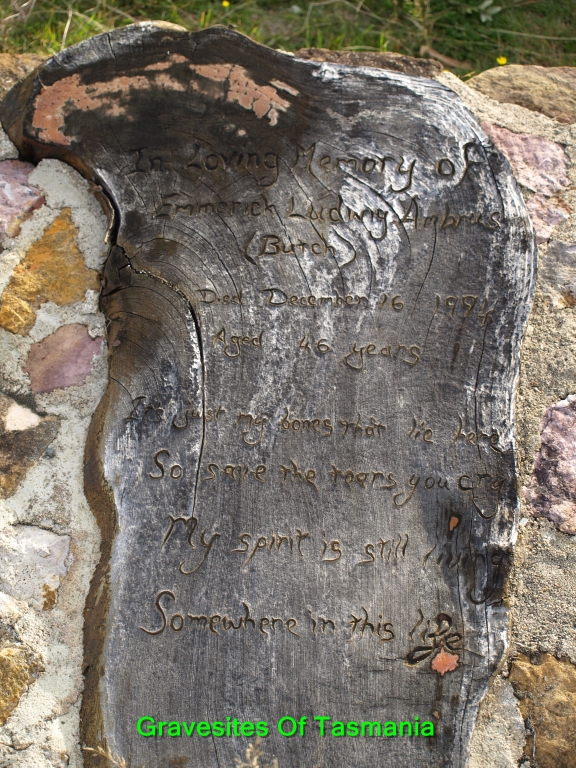 In Loving Memory of
Emmerich Ludwig Ambrus
(Butch)
Died December 16 1994
Aged 46 years
It's just my bones that lie here
So save the tears you cry
My spirit is still living
Somewhere in this life
Gravesites Of Tasmania